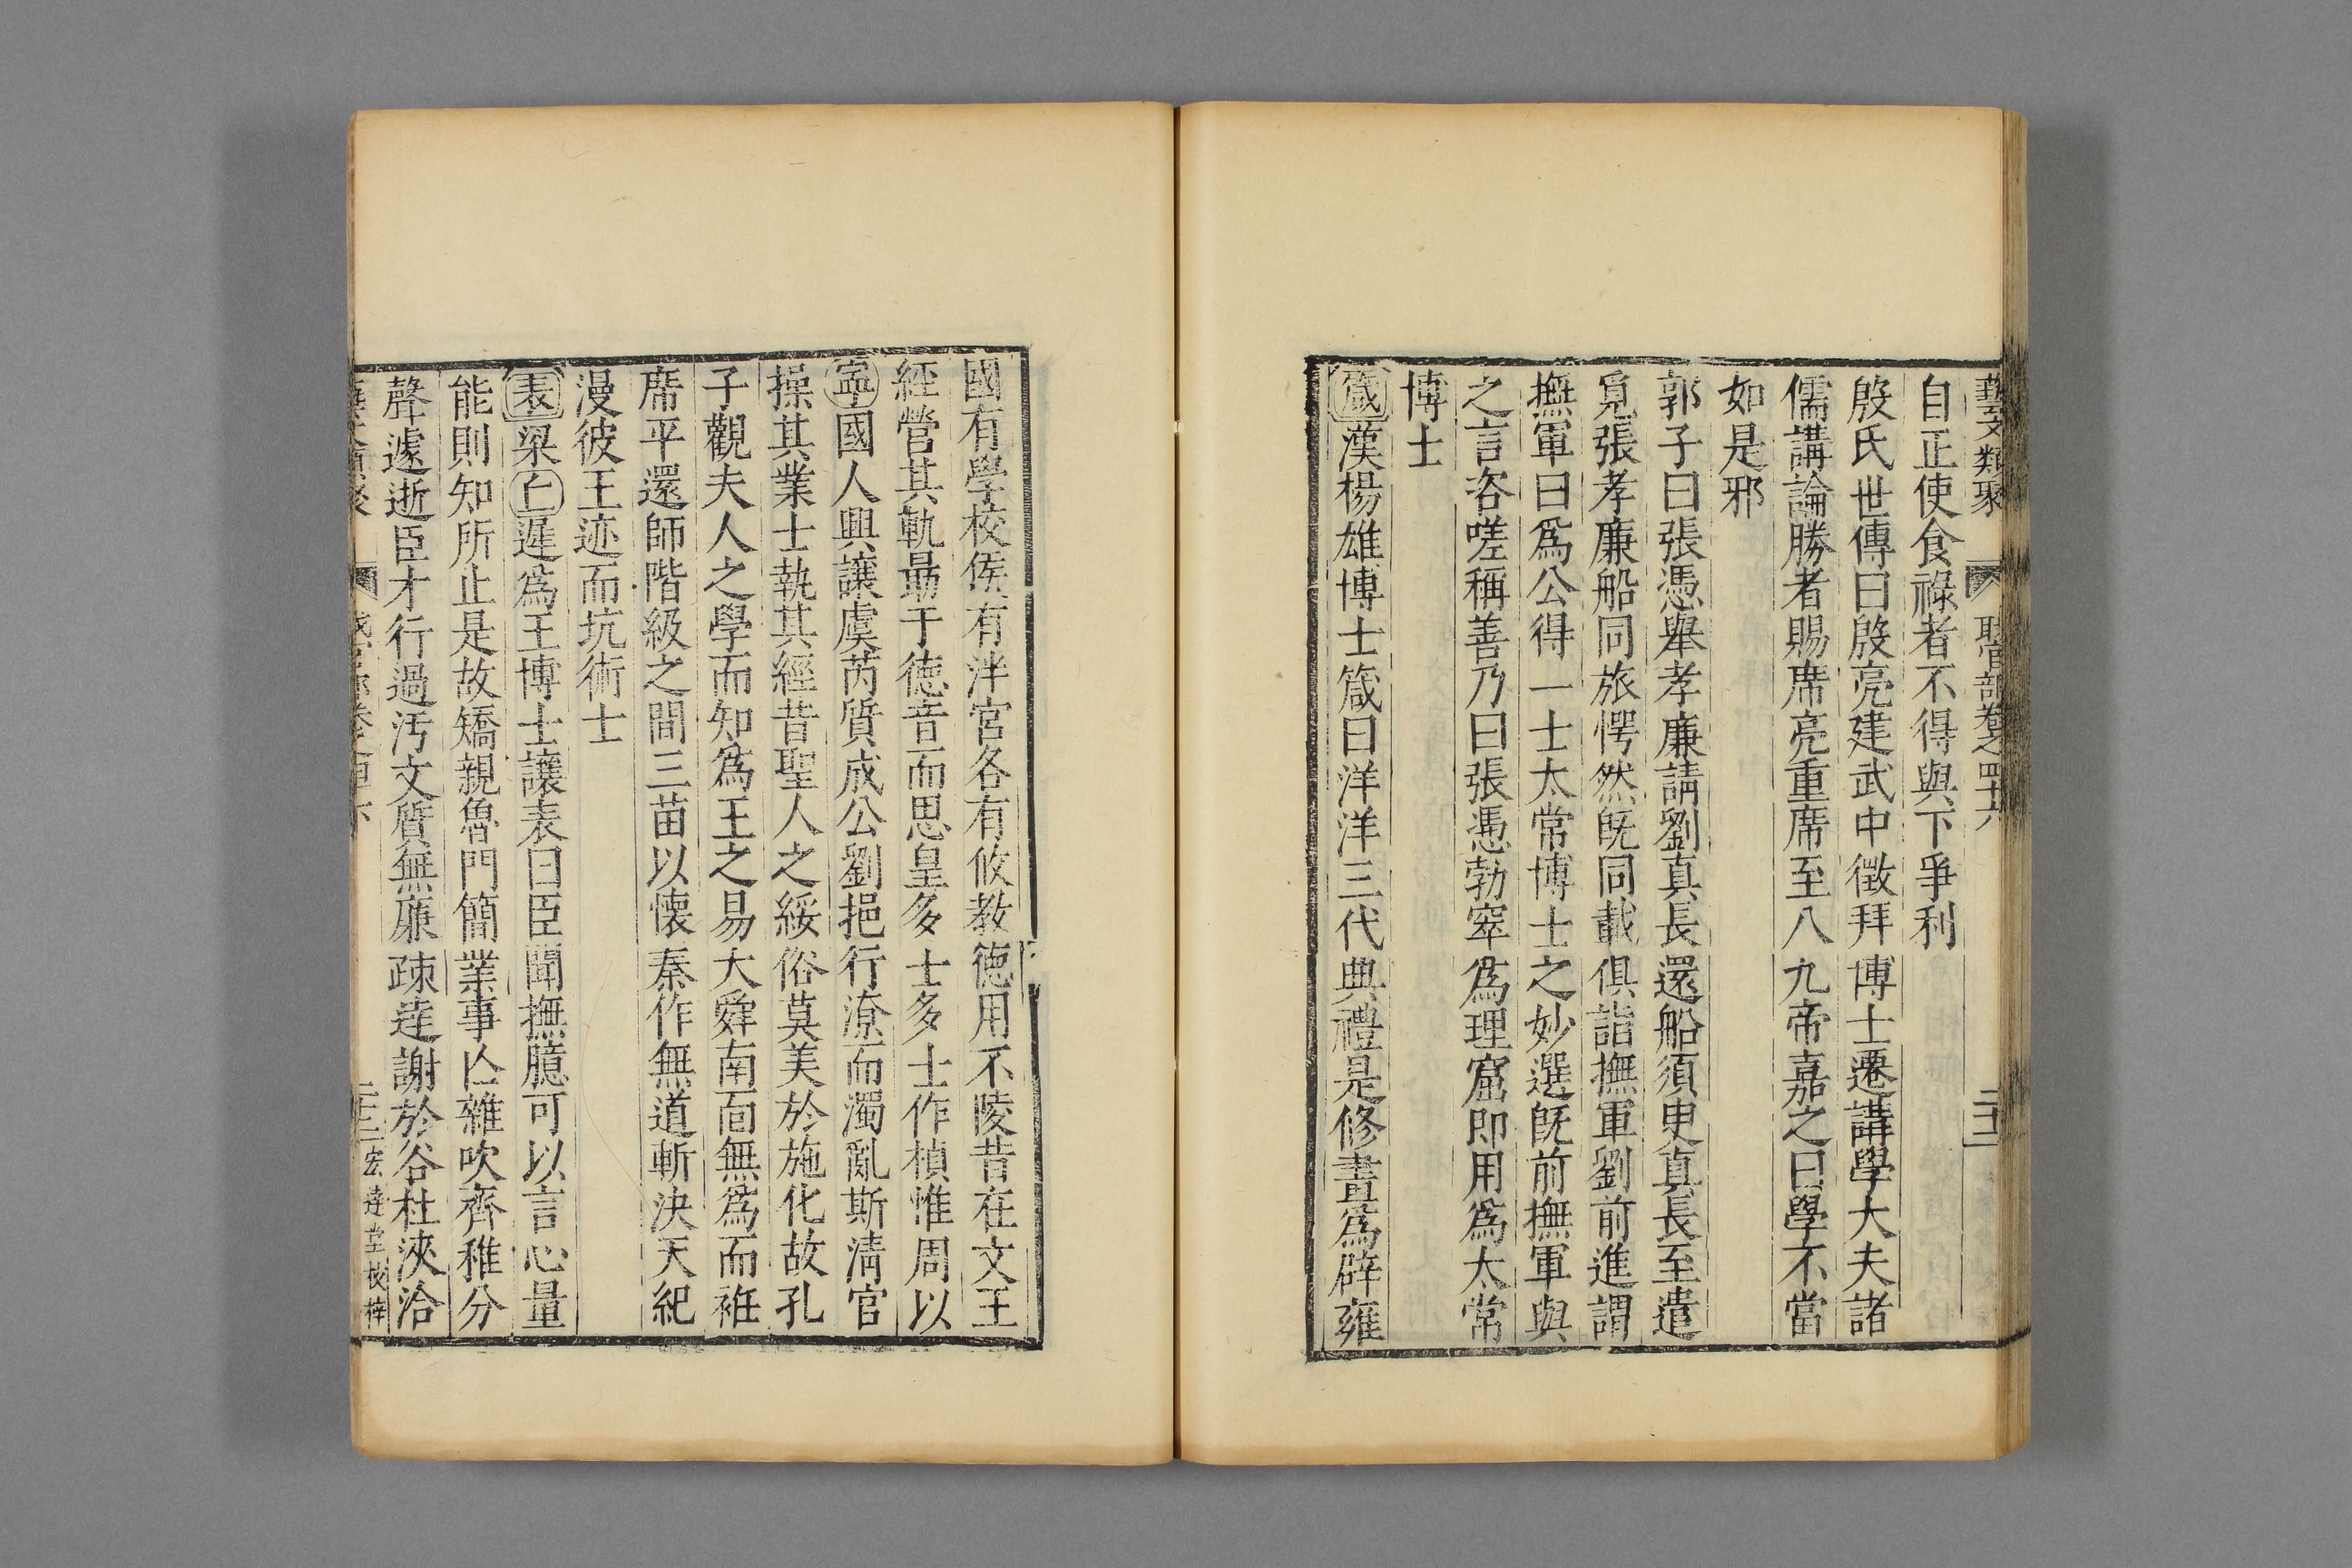 藝文類聚 職官部卷之四十六 二十二
自正使食祿者不得與下爭利
殷氏世傳曰殷亮建武中徵拜博士遷講學大夫諸
儒講論勝者賜席亮重席至八九帝嘉之曰學不當
如是邪
郭子曰張憑舉孝廉請劉真長還船須臾真長至遣
覓張孝廉船同旅愕然旣同載俱詣撫軍劉前進謂
撫軍曰爲公得一士太常博士之妙選旣前撫軍與
之言咨嗟稱善乃曰張憑勃窣爲理窟即用爲太常
博士
箴漢楊雄博士箴曰洋洋三代典禮是修畫爲辟雍
國有學校侯有泮宮各有攸教德用不陵昔在文王
經營其軌勗于德音而思皇多士多士作楨惟周以
寧國人興讓虞芮質成公劉挹行潦而濁亂斯淸官
操其業士執其經昔聖人之綏俗莫美於施化故孔
子觀夫人之學而知爲王之易大舜南面無爲而袵
席平還師階級之間三苗以懷秦作無道斬決天紀
漫彼王迹而坑術士
表梁丘遲爲王博士讓表曰臣聞撫臆可以言心量
能則知所止是故矯親魯門簡業事亾雜吹齊稚分
聲遽逝臣才行過汚文質無廉疎逹謝於谷杜浹洽
二十二 宏逹堂校梓